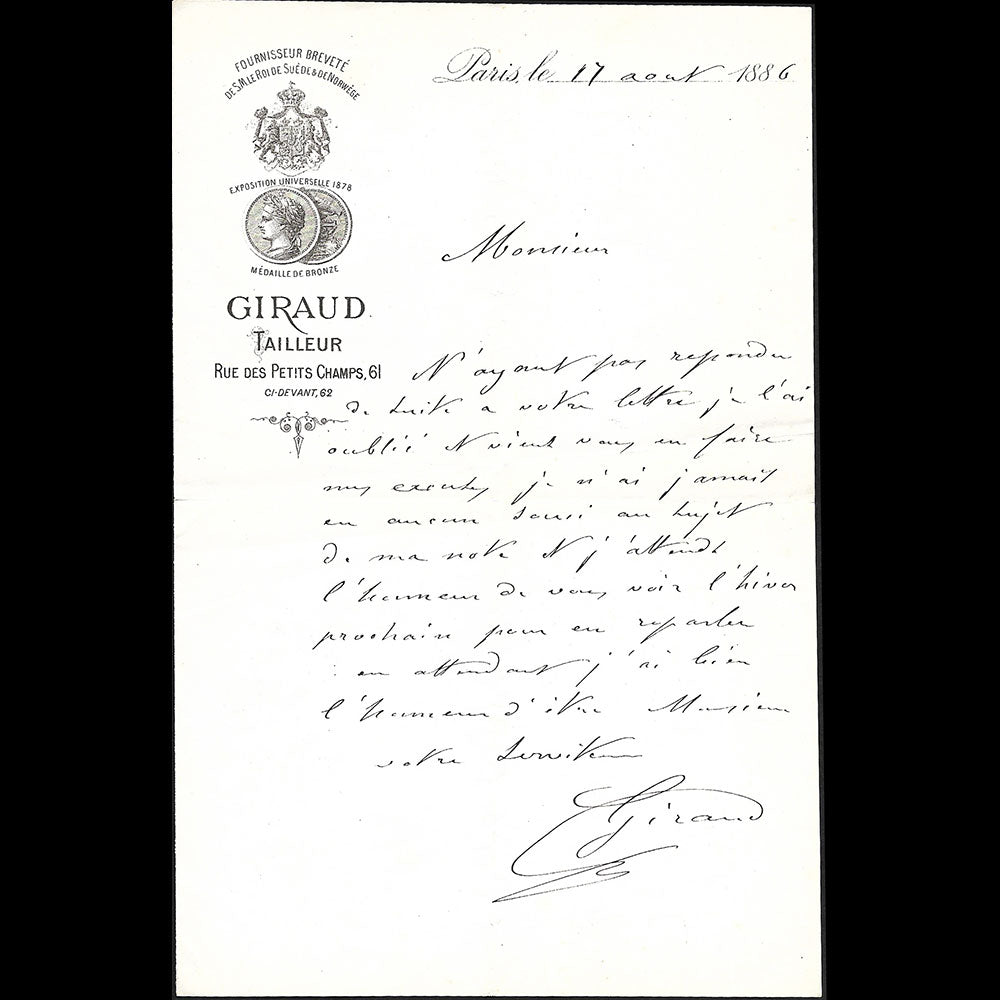 FOURNISSEUR BREVETÉ
DE S.M. LE ROI DE SUÈDE & DE NORWÈGE
EXPOSITION UNIVERSELLE 1878
MÉDAILLE DE BRONZE
GIRAUD
TAILLEUR
RUE DES PETITS CHAMPS, 61
CI-DEVANT, 62
Paris, le 17 aout 1886
Monsieur
N'ayant pas repondu
de suite a votre lettre je l'ai
oublié & vient vous en faire
mes excuses je n'ai jamais
eu aucun souci au sujet
de ma note & j'attends
l'honneur de vous voir l'hiver
prochain pour en reparler
en attendant j'ai bien
l'honneur d'être Monsieur
votre serviteur
Giraud